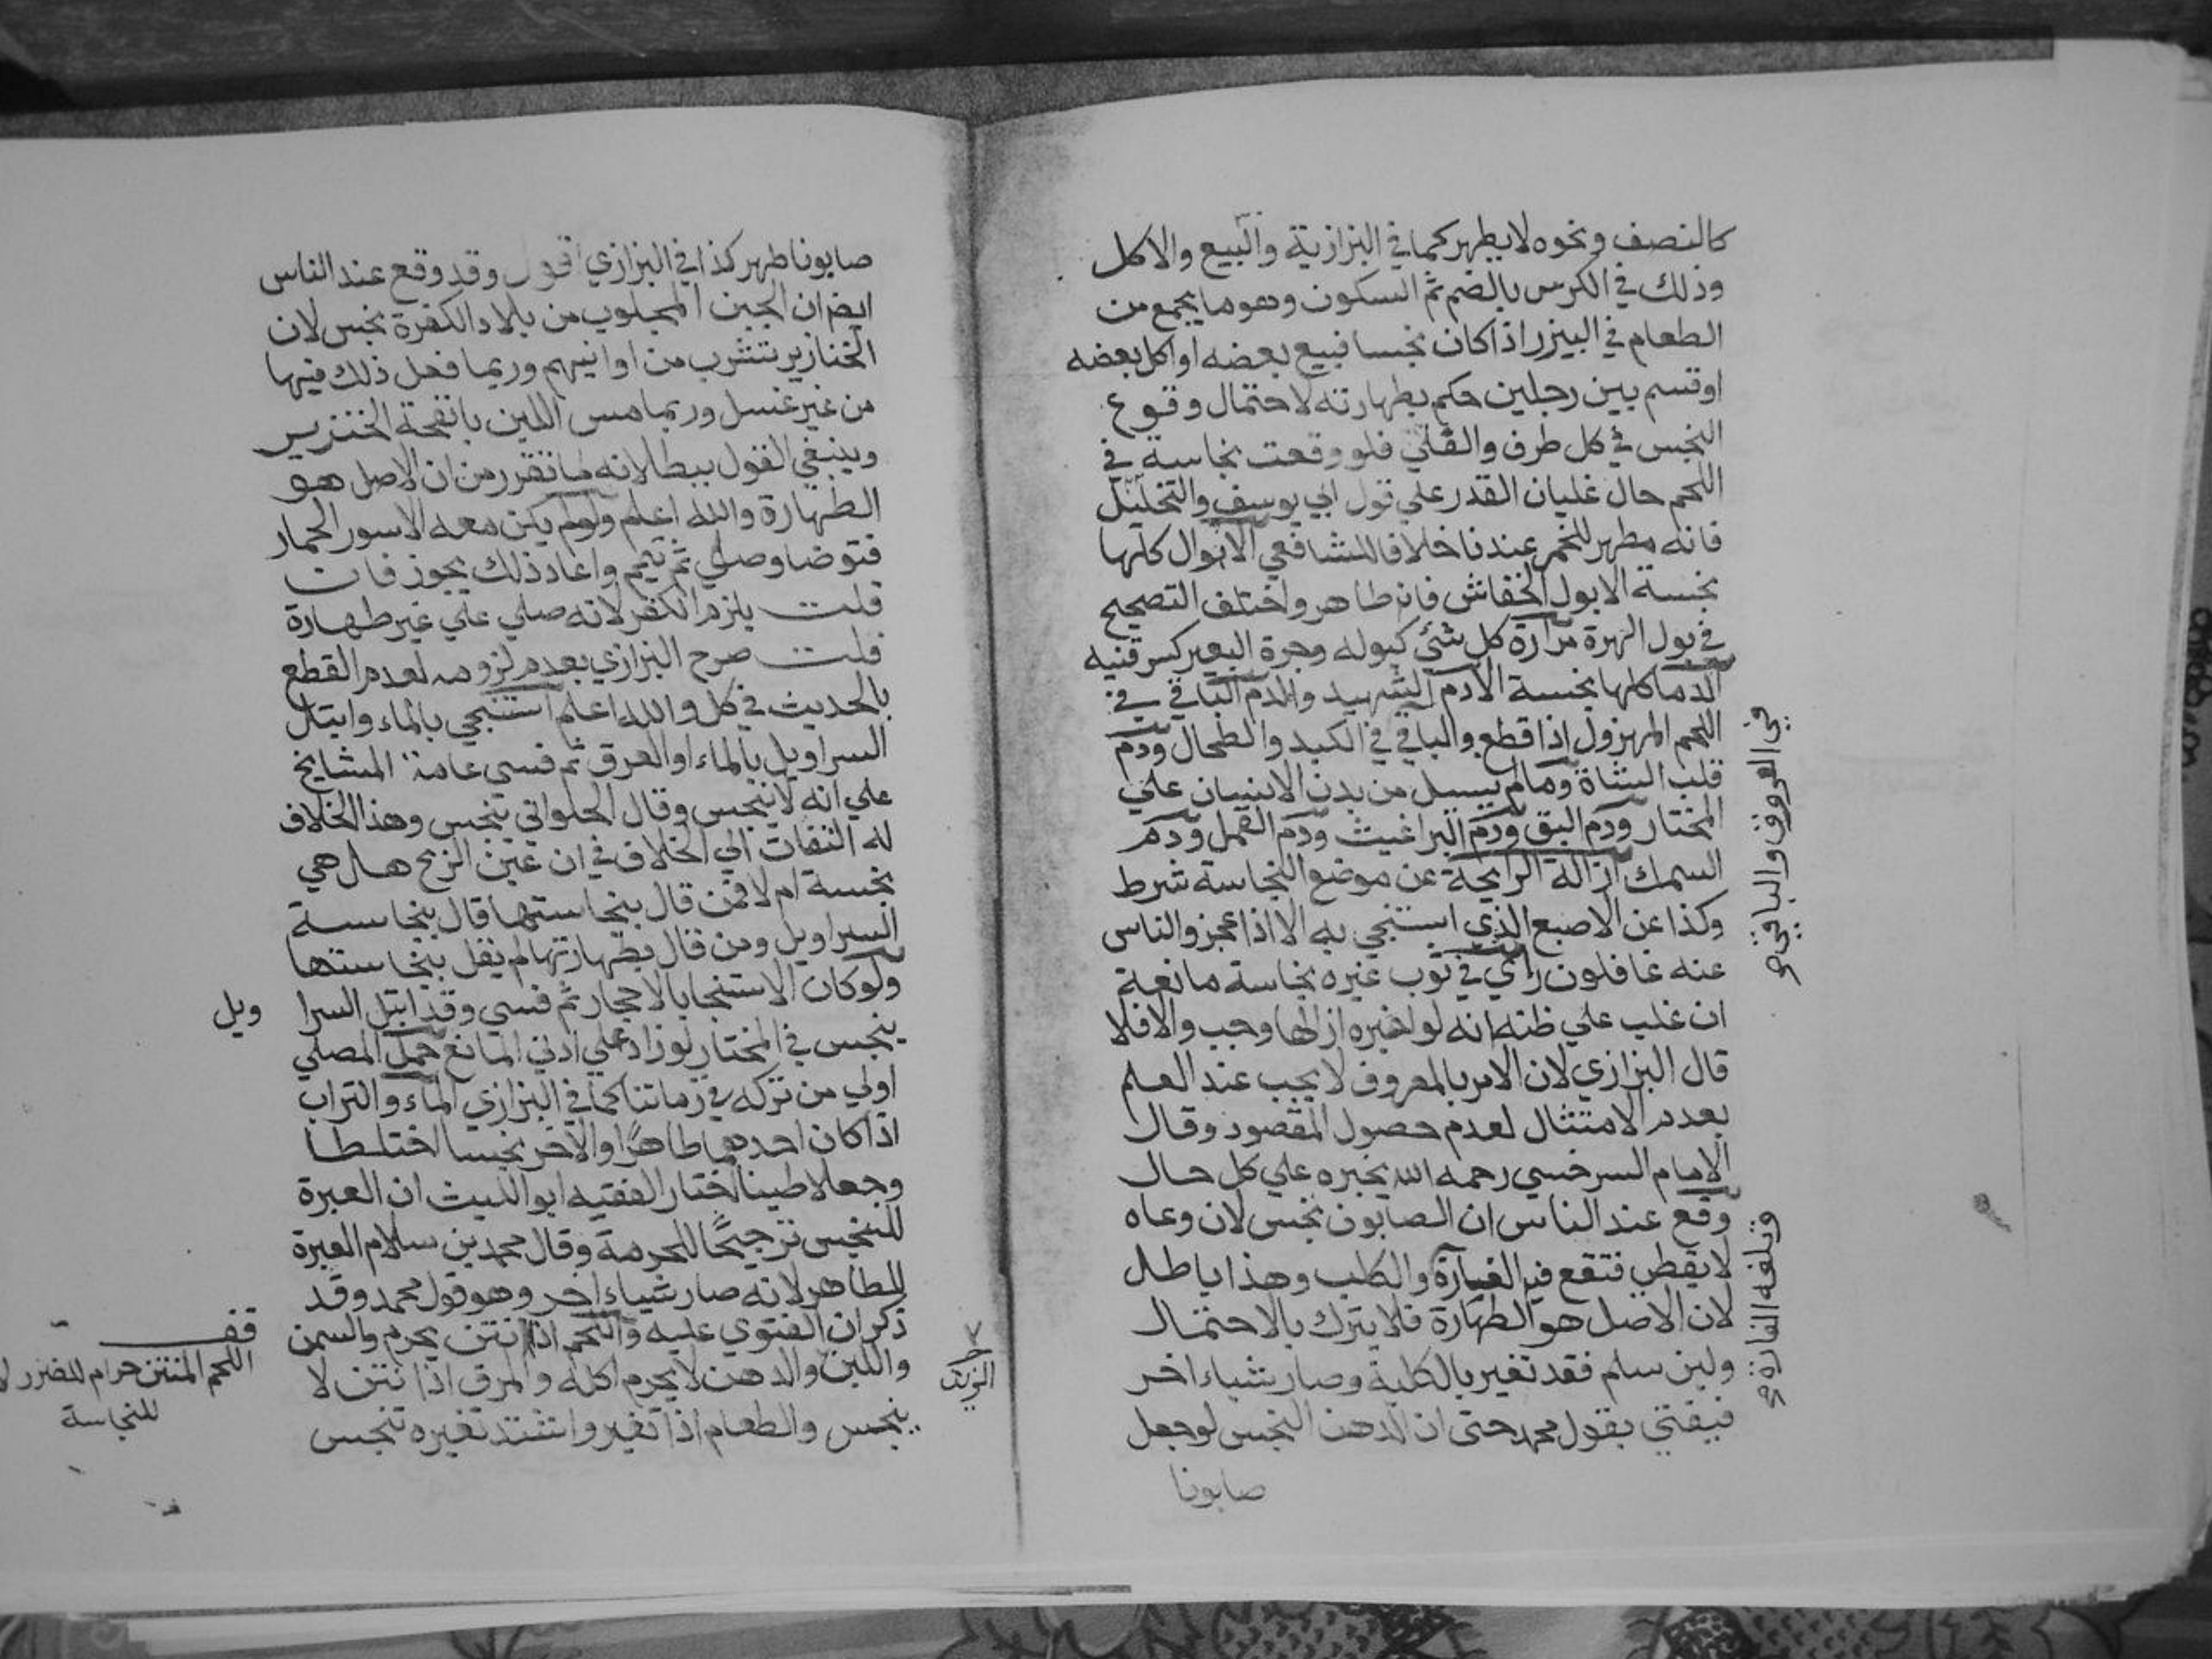 كالنصف ونحوه لا يطهر كما في البزازية والبيع والاكل
وذلك في الكرس بالضم ثم السكون وهو ما يجمع من
الطعام في البيزر اذا كان نجسا فبيع بعضه او اكل بعضه
او قسم بين رجلين حكم بطهارته لاحتمال وقوع
النجس في كل طرف والقلي فلو وقعت نجاسة في
اللحم حال غليان القدر علي قول ابي يوسف والتخليل
فانه مطهر للخمر عندنا خلافا للشافعي الابوال كلها
نجسة الا بول الخفاش فانه طاهر واختلف التصحيح
في بول الهرة مرارة كل شئ كبوله وجرة البعير كسرقنيه
الدما كلها نجسة الا دم الشهيد والدم الباقي في
اللحم المهزول اذا قطع والباقي في الكبد والطحال ودم
قلب الشاة وما لم يسيل من بدن الانسان علي
المختار ودم البق ودم البراغيث ودم القمل ودم
السمك ازالة الرايحة عن موضع النجاسة شرط
وكذا عن الاصبع الذي استنجي به الا اذا عجز والناس
عنه غافلون راي في ثوب غيره نجاسة مانعة
ان غلب علي ظنه انه لو اخبره ازالها وجب والا فلا
قال البزازي لان الامر بالمعروف لا يجب عند العلم
بعدم الامتثال لعدم حصول المقصود وقال
الامام السرخسي رحمه الله يخبره علي كل حال
وقع عند الناس ان الصابون نجس لان وعاه
لا يغطي فتقع فيه الفارة والكلب وهذا باطل
لان الاصل هو الطهارة فلا يترك بالاحتمال
ولين سلم فقد تغير بالكلية وصار شياء اخر
فيفتي بقول محمد حتى ان الدهن النجس لو جعل
صابونا
في العروق والباقي
صابونا طهر كذا في البزازي اقول وقد وقع عند الناس
ايضا ان الجبن المجلوب من بلاد الكفرة نجس لان
الخنازير تشرب من اوانيهم وربما فعل ذلك فيها
من غير غسل وربما مس اللبن بانفحة الخنزير
وينبغي القول ببطلانه لما تقرر من ان الاصل هو
الطهارة والله اعلم ولو لم يكن معه الا سور الحمار
فتوضا وصلي ثم تيمم واعاد ذلك يجوز فان
قلت يلزم الكفر لانه صلي علي غير طهارة
قلت صرح البزازي بعدم لزومه لعدم القطع
بالحديث في كل والله اعلم استنجي بالماء وابتل
السراويل بالماء او العرق ثم فسي عامة المشايخ
علي انه لا ينجس وقال الحلواني ينجس وهذا الخلاف
له التفات الي الخلاف في ان عين الريح هل هي
نجسة ام لا فمن قال بنجاستها قال بنجاسة
السراويل ومن قال بطهارتها لم يقل بنجاستها
ولو كان الاستنجا بالاحجار ثم فسي وقد ابتل السرا ويل
ينجس في المختار لو زاد علي ادني المانع حمل المصلي
اولي من تركه في زماننا كما في البزازي الماء والتراب
اذا كان احدهما طاهرا والاخر نجسا اختلطا
وجعلا طينا اختار الفقيه ابو الليث ان العبرة
للنجس ترجيحا للحرمة وقال محمد بن سلام العبرة
للطاهر لانه صار شياء اخر وهو قول محمد وقد
ذكر ان الفتوي عليه واللحم اذا انتن يحرم والسمن
واللبن والدهن لا يحرم اكله والمرق اذا انتن لا
ينجس والطعام اذا تغير واشتد تغيره تنجس
قف
اللحم المنتن حرام للضرر لا
للنجاسة